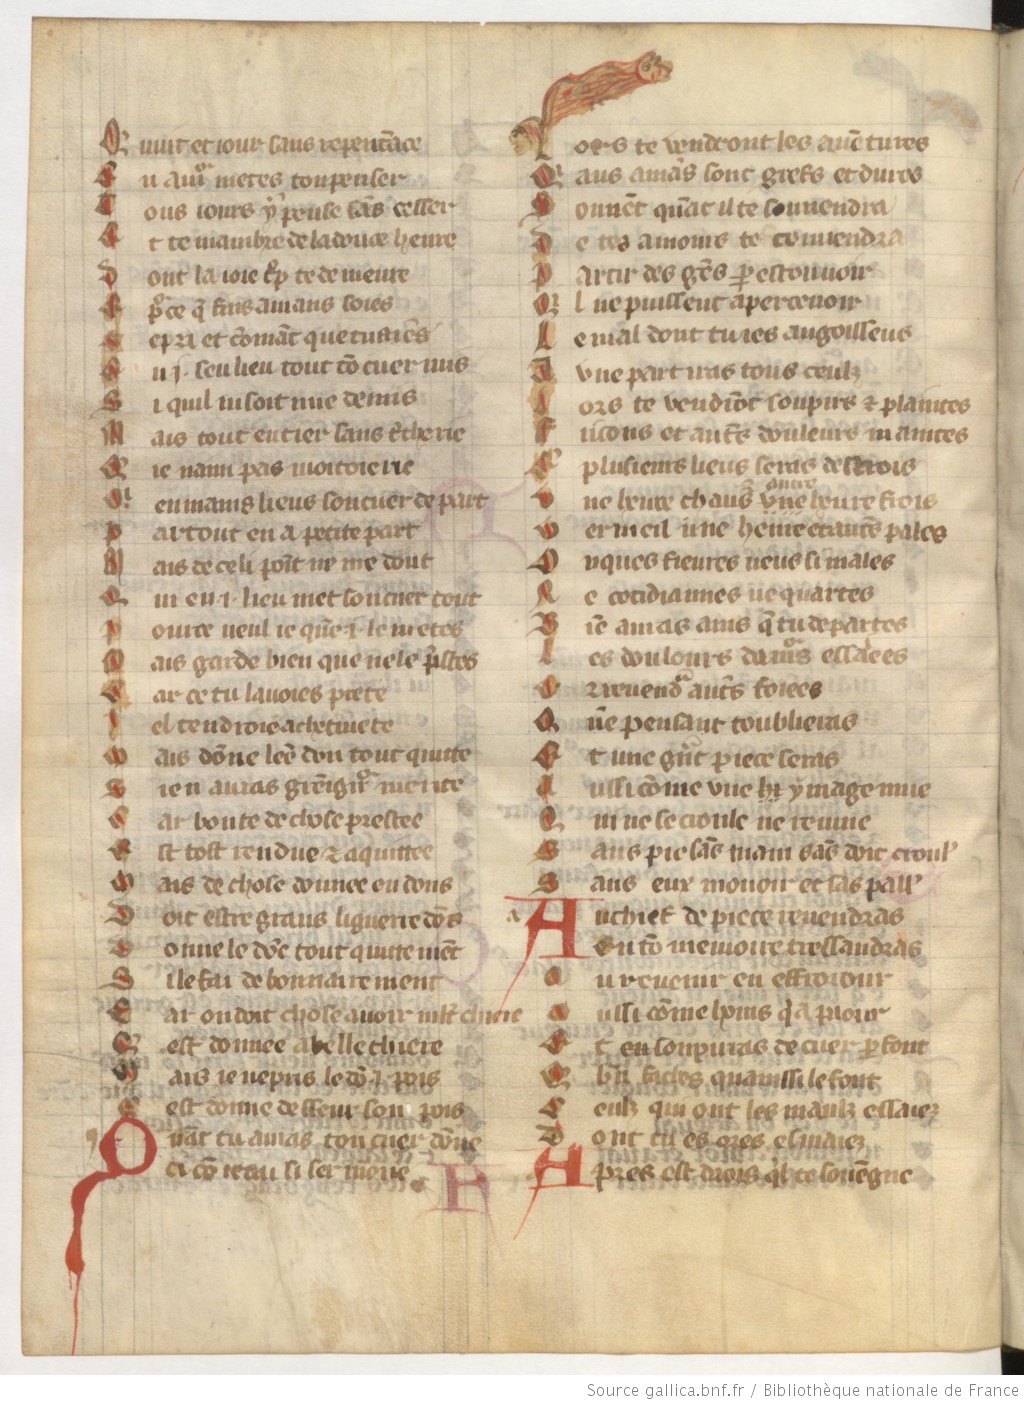 Q nuit et iour sans repentãce
E n amor metes ton penser
T ous iours y pense sãs cesser
E t te mambre de la douce heure
D ont la ioie tãt te demeure
E por ce q̃ fins amans soies
ie pri et cõmãt que tu aies
E n .i. seul lieu tout tõ cuer mis
S i quil ni soit mie demis
M ais tout entier sans tcherie
Q ie naim pas moitoierie
Q en mains lieus son cuer depart
P artout en a petite part
M ais de celi point ne me dout
Q ui en .i. lieu met son cuer tout
P our ce ueul ie quẽ .i. le metes
M ais garde bien que ne le pstes
C ar se tu lauoies preste
I el tendroie a chetiuete
M ais dõne le ẽ don tout quitte
S i en auras greigñr merite
C ar bonte de chose prestee
E st tost rendue et aquittee
M ais de chose donnee en dons
D oit estre grans li guerredõs
D onne le dõc tout quitemẽt
S i le fai debonnairement
C ar on doit chose auoir mlt chiere
Q est donnee a belle chiere
M ais ie ne pris le dõ .i. pois
Q est donne desseur son pois
Q uãt tu auras ton cuer dõne
Si cõ ie tai si sermone
L ors te vendront les auẽtures
Q aus amãs sont griefs et dures
S ouuẽt quãt il te souuendra
D e tes amours te conuendra
P artir des gẽs p estouuoir
Q l ne puissent aperceuoir
L e mal dont tu ies angoisseus
A vne part iras tous ceulz
L ors te vendrõt soupirs et plaintes
F ricons et autres douleurs maintes
E plusieurs lieus seras destrois
V ne heure chaus et vne autre heure frois
V ermeil une heure et autre pales
O nques fieures neus si males
N e cotidiannes ne quartes
B iẽ auras ains q̃ tu departes
L es doulours damors essaiees
O r reuendra autres foiees
Q uẽ pensant toublieras
E t une grãt piece seras
A ussi cõme vne ymage mue
Q ui ne se croule ne remue
S ans pie sãs main sãs doit crouler
S ans eux mouoir et sãs paller
A u chief de piece reuendras
En tõ memoire tressaudras
A u reuenir en effroour
A ussi cõme homs q̃ a paour
E t en soupiras de cuer pfont
E bñ saches quaissi le font
C eulz qui ont les maulz essaiez
D ont tu es ores esmaiez
A pres est drois q̃l te souuẽgne
Source gallica.bnf.fr / Bibliothèque nationale de France